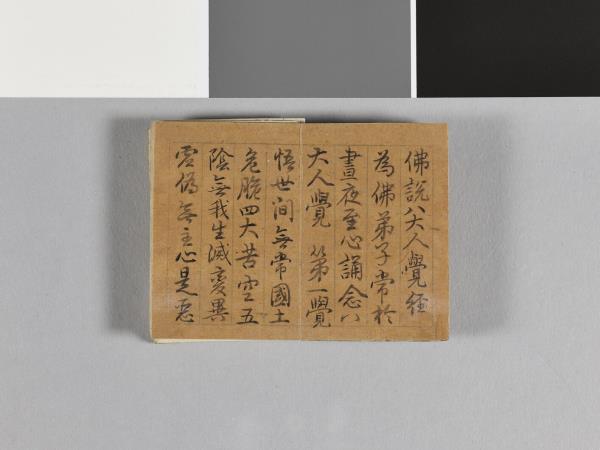 佛說八大人覺經
為佛弟子常於
晝夜至心誦念八
大人覺 第一覺
悟世间無常國土
危脆四大苦空五
陰無我生滅變異
虛偽無主心是惡